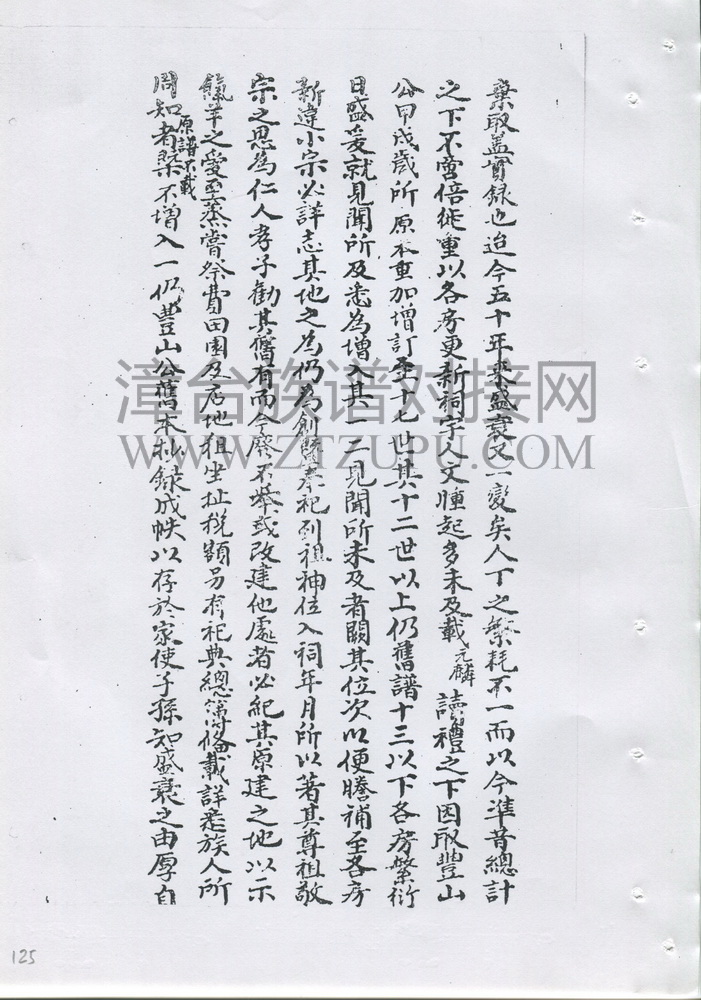 棄取盖實録也迨今五十年来盛衰又一變矣人丁之繁耗不一而以今準昔總計
之下不啻倍徙重以各房更新祠宇人文踵起多未及載元麟讀禮之下因取豐山
公甲戌歲所原本重加增訂至十七世其十二世以上仍舊譜十三以下各房繁衍
日盛爰就見聞所及悉為增入其一二見聞所未及者闕其位次以便謄補至各房
新建小宗必詳志其地之為仍為創暨奉祀列祖神位入祠年月所以著其尊祖敬
宗之思為仁人孝子勸其舊有而今廢不舉或改建他處者必紀其原建之地以示
餼羊之愛至蒸嘗祭費田園及店地租坐址税額另有祀典總簿俻載詳悉族人所
周知者原譜不載槩不增入一仍豐山公舊本抄録成帙以存於家使子孫知盛衰之由厚自
漳台族谱对接网
WWW.ZTZUPU.COM
125